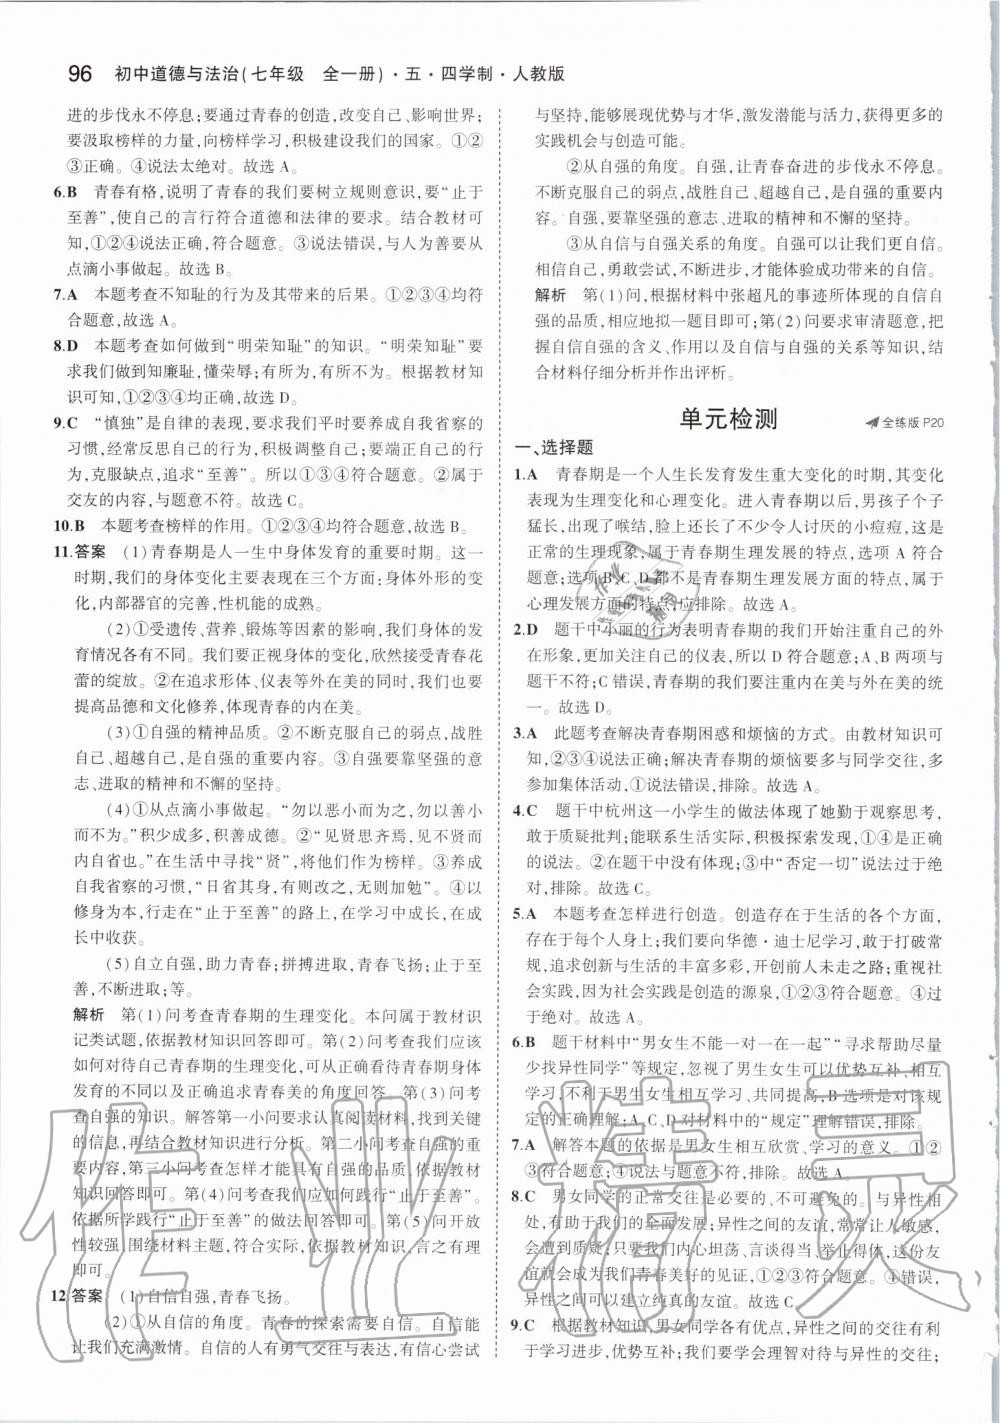 96 初中道德与法治(七年级　全一册)·五·四学制·人教版
进的步伐永不停息;要通过青春的创造,改变自己、影响世界;
要汲取榜样的力量,向榜样学习,积极建设我们的国家。①②
③正确。④说法太绝对。故选 A。
6.B　青春有格,说明了青春的我们要树立规则意识,要“止于
至善”,使自己的言行符合道德和法律的要求。结合教材可
知,①②④说法正确,符合题意。③说法错误,与人为善要从
点滴小事做起。故选 B。
7.A　本题考查不知耻的行为及其带来的后果。①②③④均符
合题意,故选 A。
8.D　本题考查如何做到“明荣知耻”的知识。“明荣知耻”要
求我们做到知廉耻,懂荣辱;有所为,有所不为。根据教材知
识可知,①②③④均正确,故选 D。
9.C　“慎独”是自律的表现,要求我们平时要养成自我省察的
习惯,经常反思自己的行为,积极调整自己;要端正自己的行
为,克服缺点,追求“至善”。所以①③④符合题意。②属于
交友的内容,与题意不符。故选 C。
10.B　本题考查榜样的作用。①②③④均符合题意,故选 B。
11.答案　(1)青春期是人一生中身体发育的重要时期。这一
时期,我们的身体变化主要表现在三个方面:身体外形的变
化,内部器官的完善,性机能的成熟。
(2)①受遗传、营养、锻炼等因素的影响,我们身体的发
育情况各有不同。我们要正视身体的变化,欣然接受青春花
蕾的绽放。②在追求形体、仪表等外在美的同时,我们也要
提高品德和文化修养,体现青春的内在美。
(3)①自强的精神品质。②不断克服自己的弱点,战胜
自己、超越自己,是自强的重要内容。③自强要靠坚强的意
志、进取的精神和不懈的坚持。
(4)①从点滴小事做起。“勿以恶小而为之,勿以善小
而不为。”积少成多,积善成德。②“见贤思齐焉,见不贤而
内自省也。”在生活中寻找“贤”,将他们作为榜样。③养成
自我省察的习惯,“日省其身,有则改之,无则加勉”。④以
修身为本,行走在“止于至善”的路上,在学习中成长,在成
长中收获。
(5)自立自强,助力青春;拼搏进取,青春飞扬;止于至
善,不断进取;等。
解析　第(1)问考查青春期的生理变化。本问属于教材识
记类试题,依据教材知识回答即可。第(2)问考查我们应该
如何对待自己青春期的生理变化,可从正确看待青春期身体
发育的不同以及正确追求青春美的角度回答。第(3)问考
查自强的知识。解答第一小问要求认真阅读材料,找到关键
的信息,再结合教材知识进行分析。第二小问考查自强的重
要内容,第三小问考查怎样才能具有自强的品质,依据教材
知识回答即可。第(4)问考查我们应如何践行“止于至善”。
依据所学践行“止于至善”的做法回答即可。第(5)问开放
性较强,围绕材料主题,符合实际,依据教材知识,言之有理
即可。
12.答案　(1)自信自强,青春飞扬。
(2)①从自信的角度。青春的探索需要自信。自信能
让我们充满激情。自信的人有勇气交往与表达,有信心尝试
与坚持,能够展现优势与才华,激发潜能与活力,获得更多的
实践机会与创造可能。
②从自强的角度。自强,让青春奋进的步伐永不停息。
不断克服自己的弱点,战胜自己、超越自己,是自强的重要内
容。自强,要靠坚强的意志、进取的精神和不懈的坚持。
③从自信与自强关系的角度。自强可以让我们更自信。
相信自己,勇敢尝试,不断进步,才能体验成功带来的自信。
解析　第(1)问,根据材料中张超凡的事迹所体现的自信自
强的品质,相应地拟一题目即可;第(2)问要求审清题意,把
握自信自强的含义、作用以及自信与自强的关系等知识,结
合材料仔细分析并作出评析。
单元检测　全练版 P20
一、选择题
1.A　青春期是一个人生长发育发生重大变化的时期,其变化
表现为生理变化和心理变化。进入青春期以后,男孩子个子
猛长,出现了喉结,脸上还长了不少令人讨厌的小痘痘,这是
正常的生理现象,属于青春期生理发展的特点,选项 A 符合
题意;选项 B、C、D 都不是青春期生理发展方面的特点,属于
心理发展方面的特点,应排除。故选 A。
2.D　题干中小丽的行为表明青春期的我们开始注重自己的外
在形象,更加关注自己的仪表,所以 D 符合题意;A、B 两项与
题干不符;C 错误,青春期的我们要注重内在美与外在美的统
一。故选 D。
3.A　此题考查解决青春期困惑和烦恼的方式。由教材知识可
知,②③④说法正确;解决青春期的烦恼要多与同学交往,多
参加集体活动,①说法错误,排除。故选 A。
4.C　题干中杭州这一小学生的做法体现了她勤于观察思考,
敢于质疑批判;能联系生活实际,积极探索发现,①④是正确
的说法。②在题干中没有体现;③中“否定一切”说法过于绝
对,排除。故选 C。
5.A　本题考查怎样进行创造。创造存在于生活的各个方面,
存在于每个人身上;我们要向华德·迪士尼学习,敢于打破常
规,追求创新与生活的丰富多彩,开创前人未走之路;要重视社
会实践,因为社会实践是创造的源泉,①②③符合题意。④过
于绝对。故选 A。
6.B　题干材料中“男女生不能一对一在一起”“寻求帮助尽量
少找异性同学”等规定,忽视了男生女生可以优势互补、相互
学习,不利于男生女生相互学习、共同提高,B 选项是对该规
定的正确理解;A、C、D 对材料中的“规定”理解错误,排除。
7.A　解答本题的依据是男女生相互欣赏、学习的意义。①②
③符合题意;④说法与题意不符,排除。故选 A。
8.C　男女同学的正常交往是必要的、不可避免的。与异性相
处,有助于我们的全面发展;异性之间的友谊,常常让人敏感,
会遭到质疑;只要我们内心坦荡、言谈得当、举止得体,这份友
谊就会成为我们青春美好的见证,①③④符合题意。②错误,
异性之间可以建立纯真的友谊。故选 C。
9.C　根据教材知识,男女同学各有优点,异性之间的交往有利
于学习进步,优势互补;我们要学会理智对待与异性的交往;
作业精灵